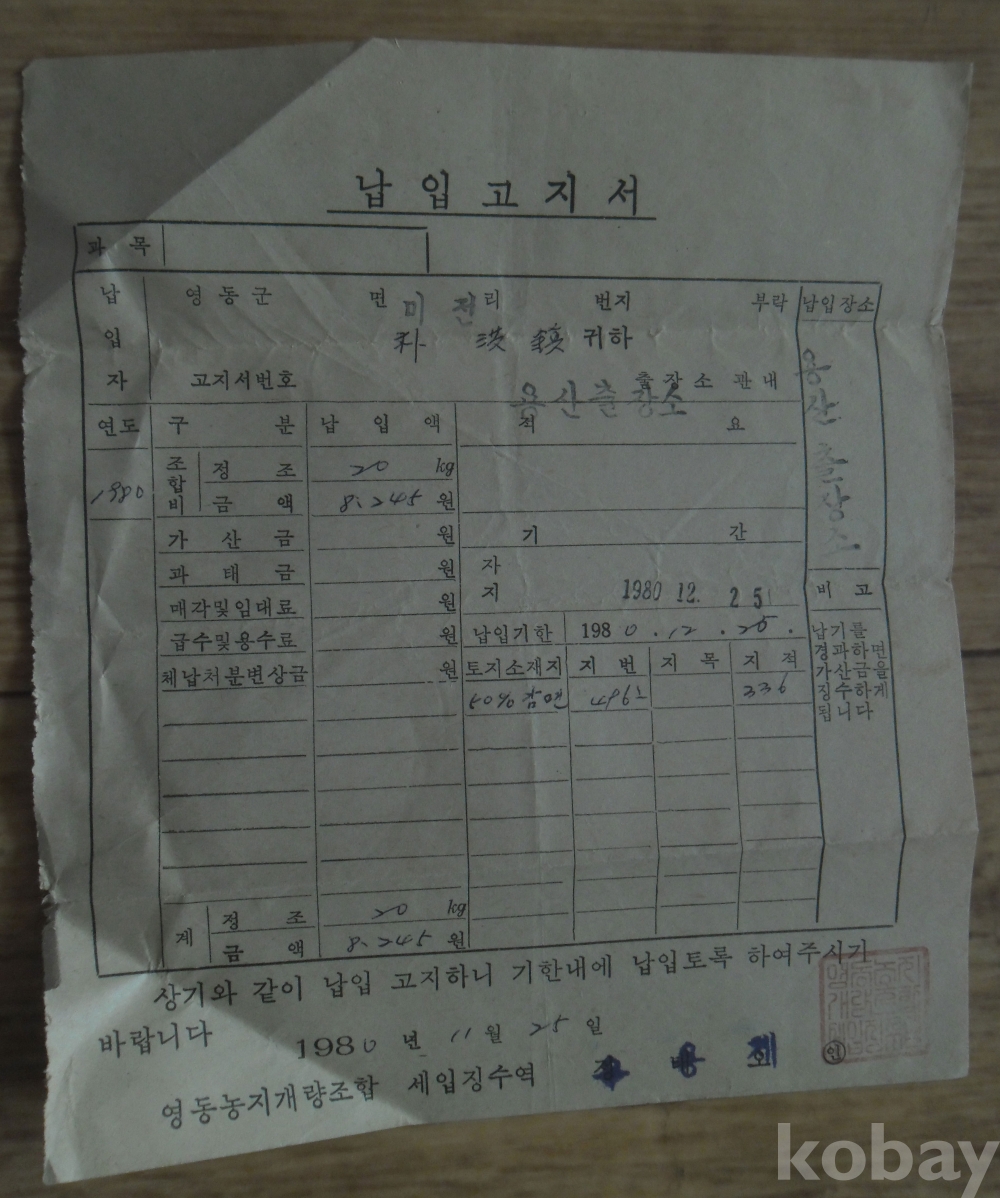 납입고지서
과목
납입자 영동군 면 미전리 번지 부락 납입장소
朴 洪 鎭 귀하
고지서번호 용산출장소 출장소 관내
용산출장소
연도 구분 납입액 적요
1980 조합비 정조 20 kg
금액 8,245 원
가산금 원 기간
과태금 원 자
매각및임대료 원 지 1980 12. 25
급수및용수료 원 납입기한 1980.12.25.
체납처분변상금 원 토지소재지 지번 지목 지적
50% 496 336
비고
납기를
경과하면
가산금을
징수하게
됩니다
계 정조 20 kg
금액 8,245 원
상기와 같이 납입 고지하니 기한내에 납입토록 하여주시기
바랍니다
1980 년 11 월 25 일
영동농지개량조합 세입징수역 ㊞
kobay